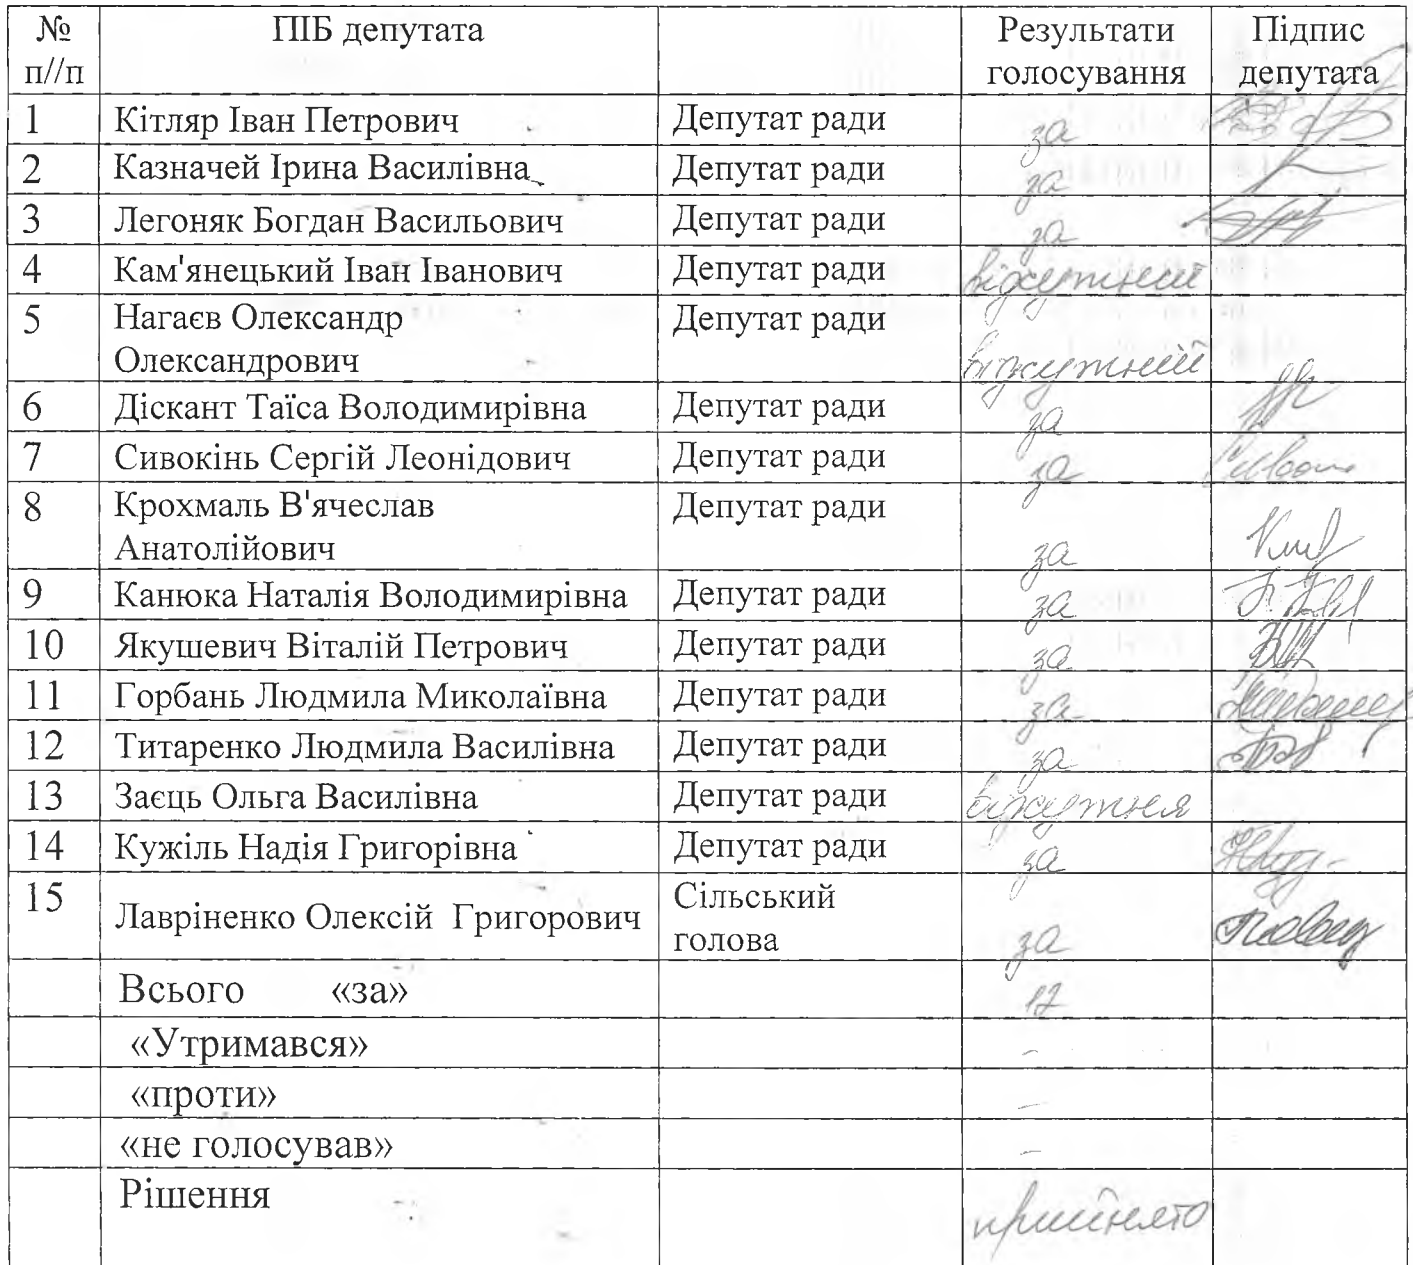 № п//п ПІБ депутата Результати голосування Підпис депутата
1 Кітляр Іван Петрович Депутат ради за
2 Казначей Ірина Василівна Депутат ради за
3 Легоняк Богдан Васильович Депутат ради за
4 Кам'янецький Іван Іванович Депутат ради відсутній
5 Нагаєв Олександр Депутат ради
Олександрович відсутній
6 Діскант Таїса Володимирівна Депутат ради за
7 Сивокінь Сергій Леонідович Депутат ради за
8 Крохмаль В'ячеслав Депутат ради
Анатолійович за
9 Канюка Наталія Володимирівна Депутат ради за
10 Якушевич Віталій Петрович Депутат ради за
11 Горбань Людмила Миколаївна Депутат ради за
12 Титаренко Людмила Василівна Депутат ради за
13 Заєць Ольга Василівна Депутат ради відсутня
14 Кужіль Надія Григорівна Депутат ради за
15 Лавріненко Олексій Григорович Сільський голова за
Всього «за» 12
«Утримався» -
«проти» -
«не голосував» -
Рішення прийнято